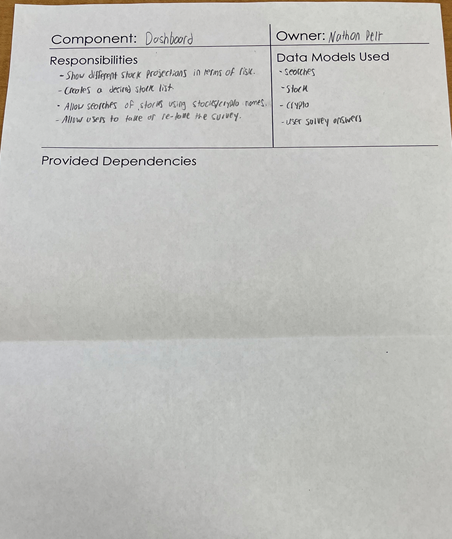 Component: Dashboard
Owner: Nathan
Responsibilities
- Show different stock projections in terms of risk.
- Creates a desired stock list
- Allow searches of stocks using stocks/crypto names.
- Allow users to take or re-take the survey.
Data Models Used
- searches
- Stock
- Crypto
- user survey answers
Provided Dependencies